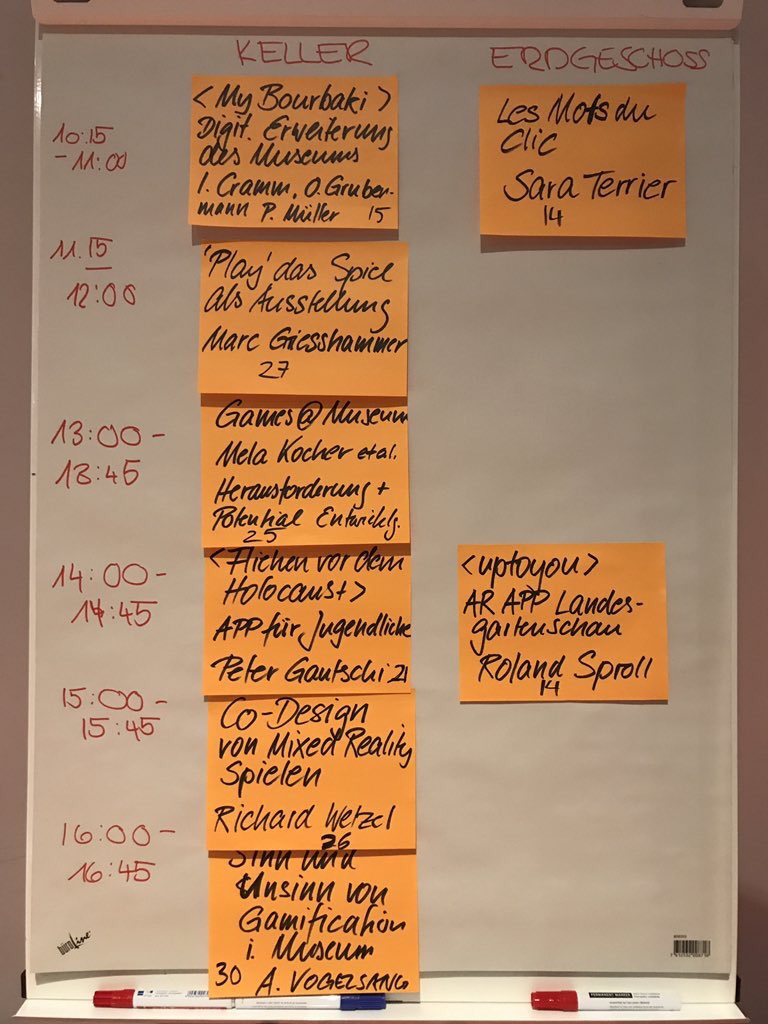 KELLER
ERDGESCHOSS
10:15
-11:00
<My Bourbaki>
Digit. Erweiterung
des Museums
I. Cramm, O. Gruber-
mann P. Müller 15
Les Mots du
Clic
Sara Terrier
14
11.15
12:00
'Play' das Spiel
als Ausstellung
Marc Giesshammer
27
13:00-
13:45
Games@Museum
Mela Kocher et al.
Herausforderung +
Potential Entwicklg.
25
14:00-
14:45
<Fliehen vor dem
Holocaust>
APP für Jugendliche
Peter Gautschi 21
<uptoyou>
AR APP Landes-
gartenschau
Roland Sproll
14
15:00-
15:45
Co-Design
von Mixed Reality
Spielen
Richard Wetzel
26
16:00-
16:45
Sinn und
Unsinn von
Gamification
i. Museum
30 A. VOGELSANG
büroLine
PERMANENT MARKER